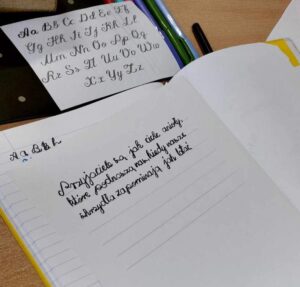 Aa Bb Cc Dd Ee Ff
Gg Hh Ii Jj Kk Ll
Mm Nn Oo Pp Qq
Rr Ss Tt Uu Vv Ww
Xx Yy Zz
Aa Bb
Przyjaciele są jak ciche anioły,
które podnoszą nas, kiedy nasze
skrzydła zapominają jak latać